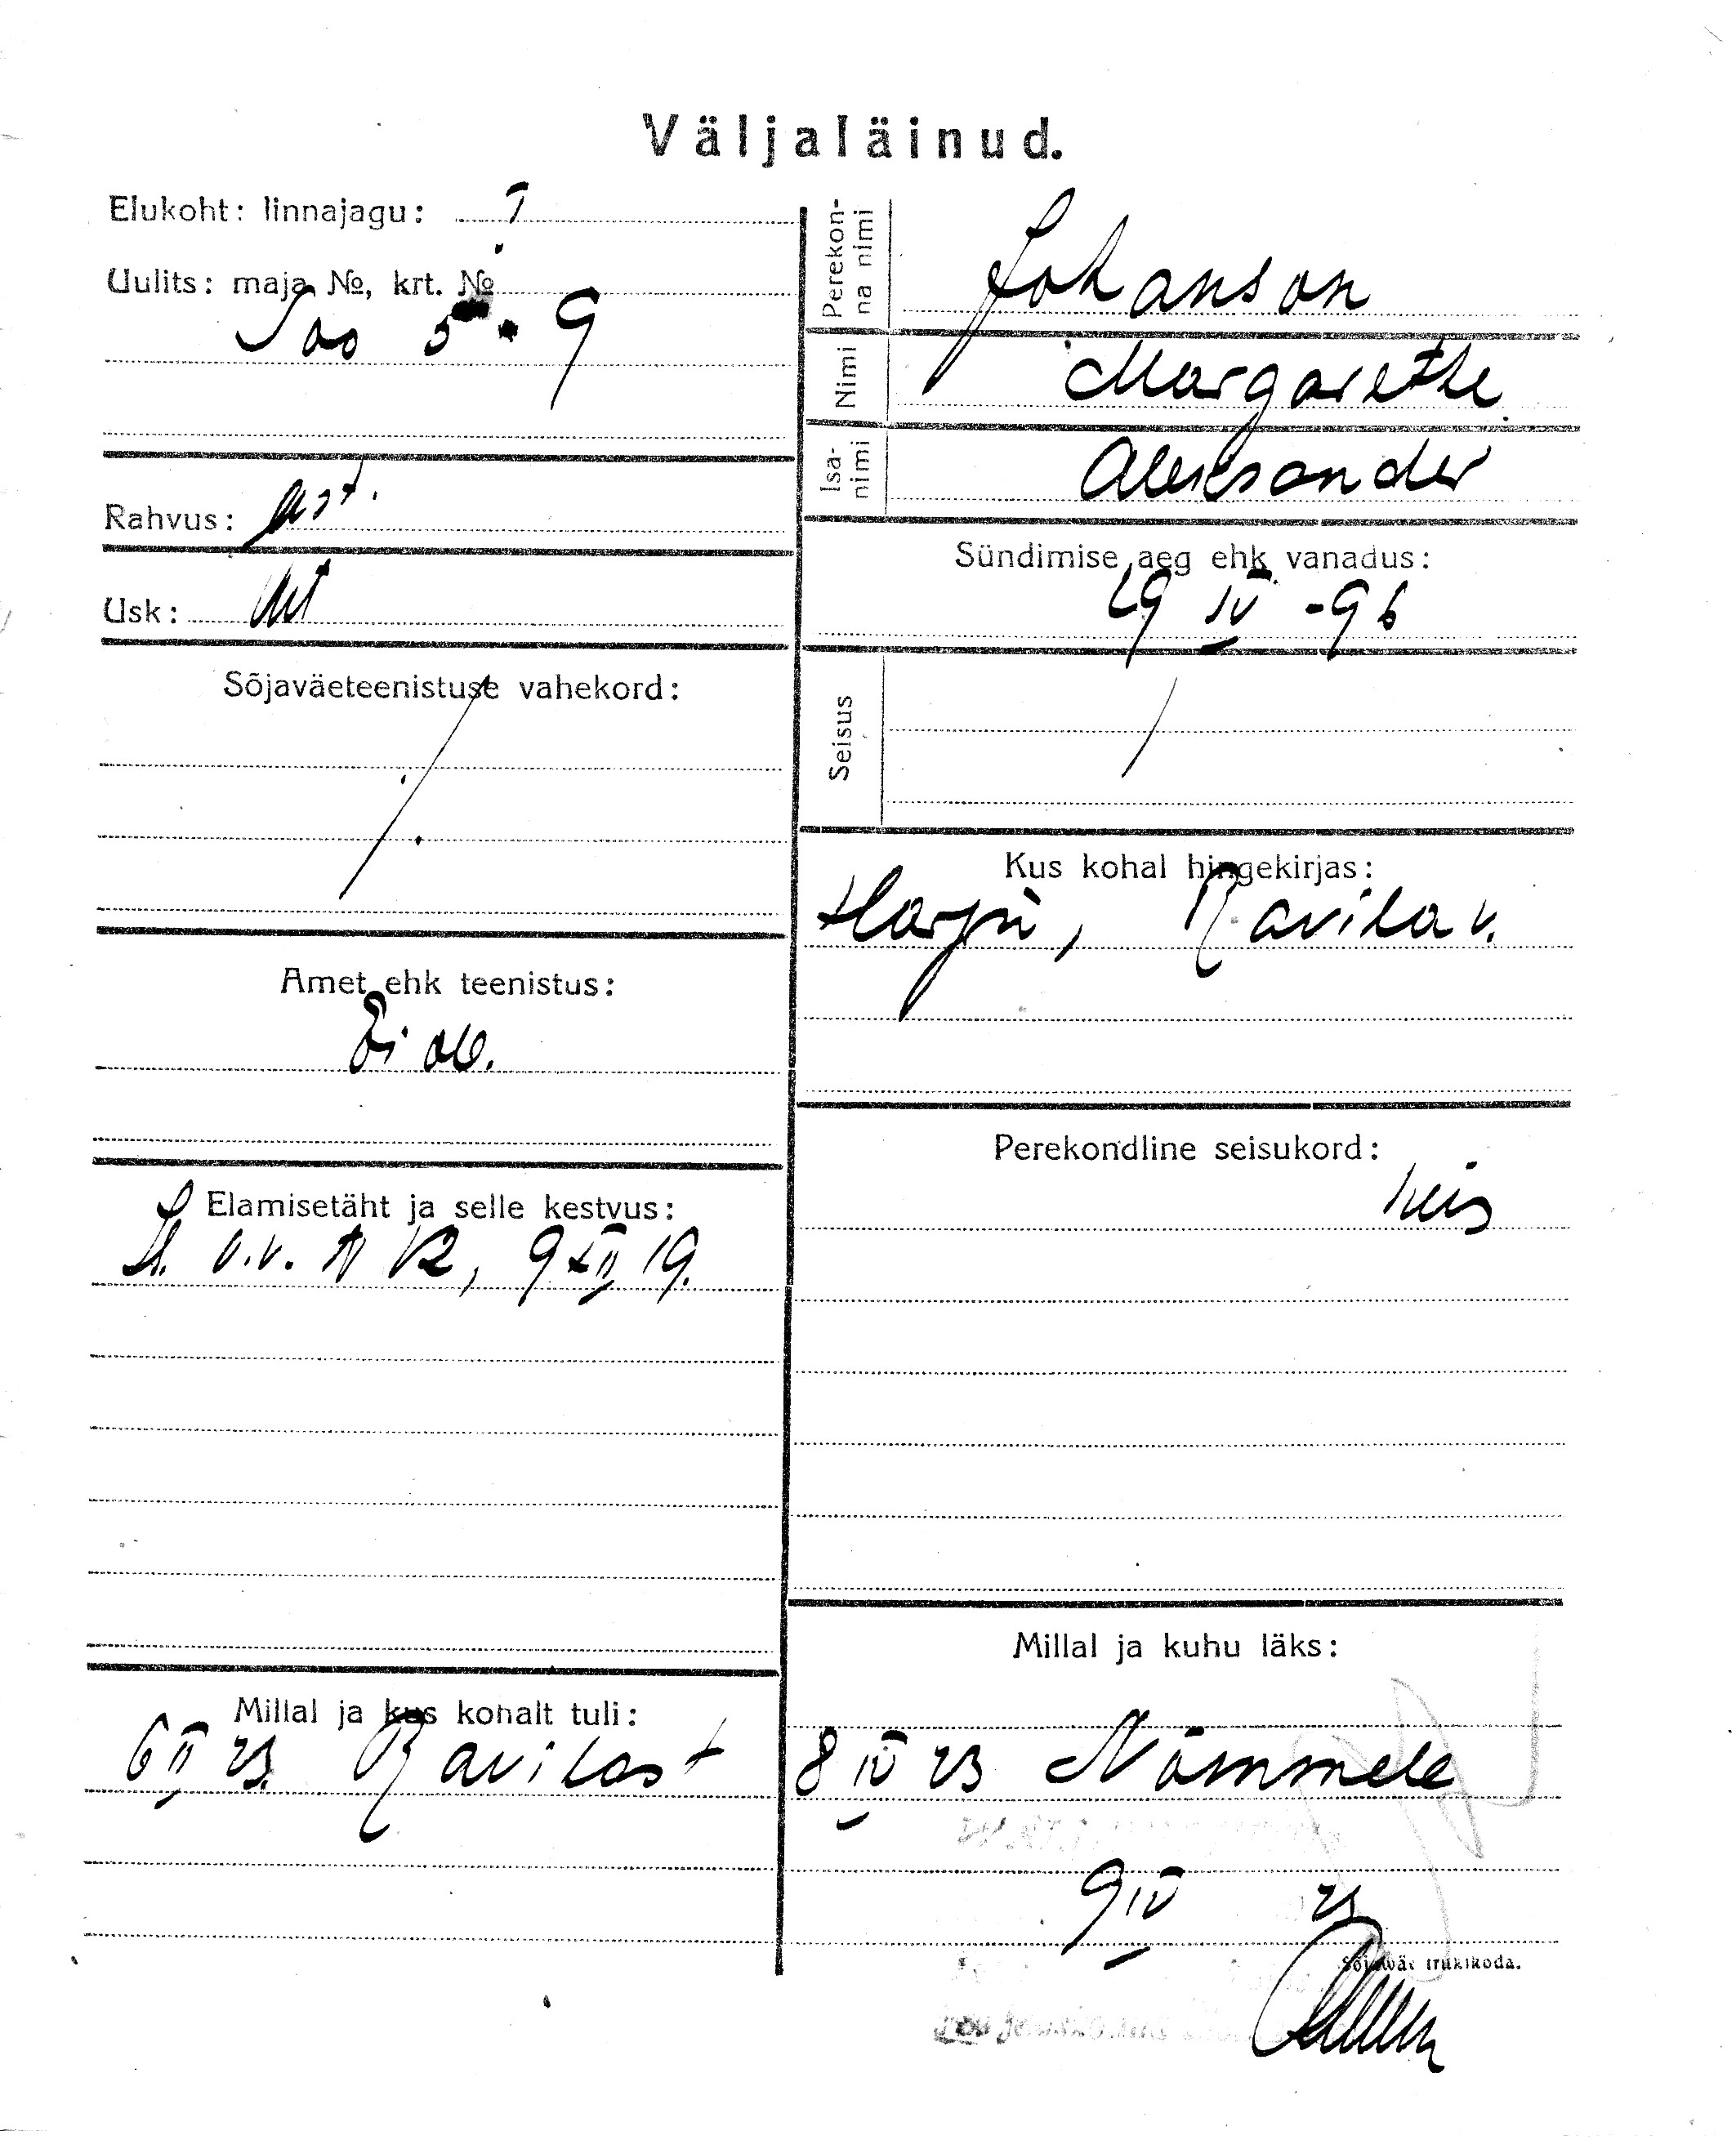 Väljaläinud.
Elukoht: linnajagu: I
Uulits: maja №, krt. №
Soo 5 - 9
Rahvus: est.
Usk: lut
Sõjaväeteenistuse vahekord:
Amet ehk teenistus:
Ei ole.
Elamisetäht ja selle kestvus:
v.v. № 12, 9 XII 19.
Millal ja kus kohalt tuli:
6 II 23. Ravilast
Perekon-
na nimi
Johanson
Nimi
Margarethe
Isa-
nimi
Aleksander
Sündimise aeg ehk vanadus:
29 IV -96
Seisus
Kus kohal hingekirjas:
Harju, Ravila v.
Perekondline seisukord:
neis
Millal ja kuhu läks:
8 IV 23 Nõmmele
9 IV 23
Sõjawäe trükikoda.